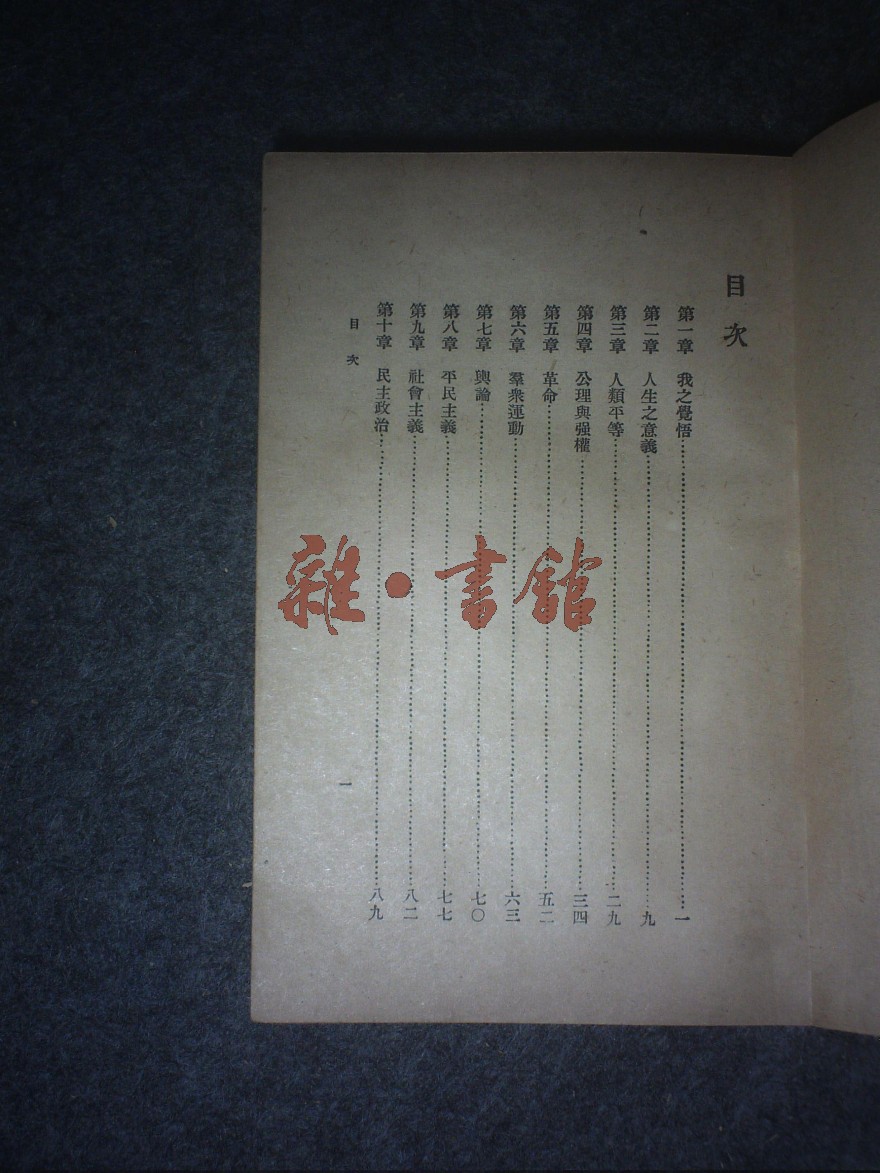 目次
第一章 我之覺悟……一
第二章 人生之意義……九
第三章 人類平等……二九
第四章 公理與强權……三四
第五章 革命……五二
第六章 羣衆運動……六三
第七章 輿論……七〇
第八章 平民主義……七七
第九章 社會主義……八二
第十章 民主政治……八九
目次
一
雜·書館